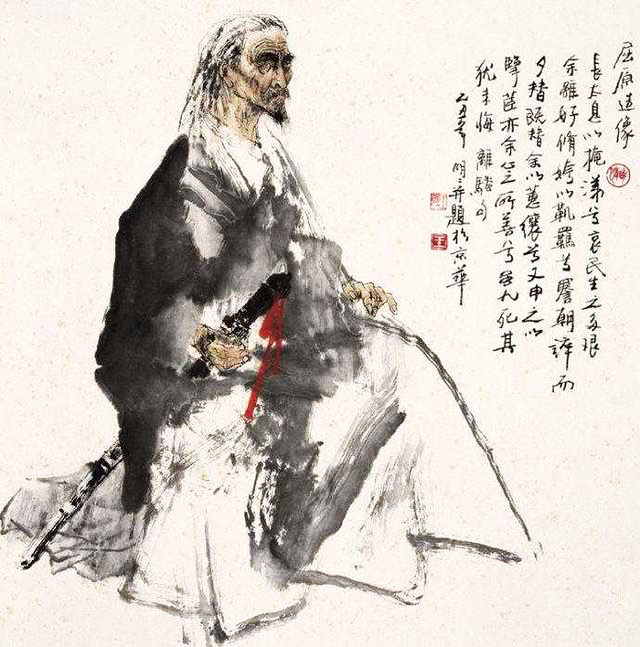 屈原造像
長太息以掩涕兮哀民生之多艰
余雖好脩姱以鞿羈兮謇朝誶而
夕替既替余以蕙纕兮又申之以
擥茝亦余心之所善兮虽九死其
犹未悔 離騷句
乙丑 明〻并題於京華
王